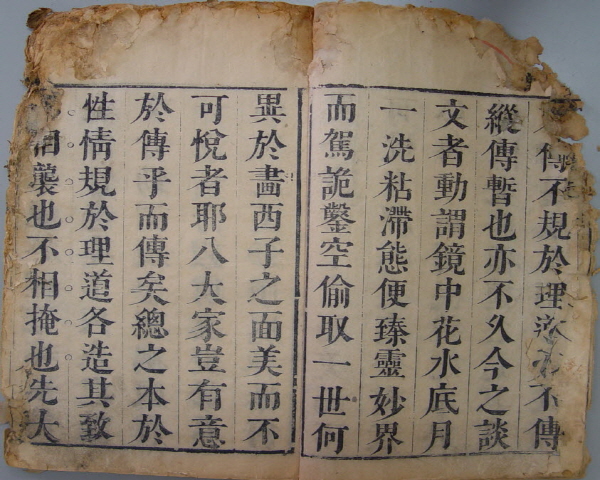 傳不規於理必不傳
縱傳暫也亦不久今之談
文者動謂鏡中花水底月
一洗粘滯態便臻靈妙界
而駕詭鑿空偷取一世何
異於畫西子之面美而不
可悅者耶八大家豈有意
於傳乎而傳矣總之本於
性情規於理道各造其致
相襲也不相掩也先大